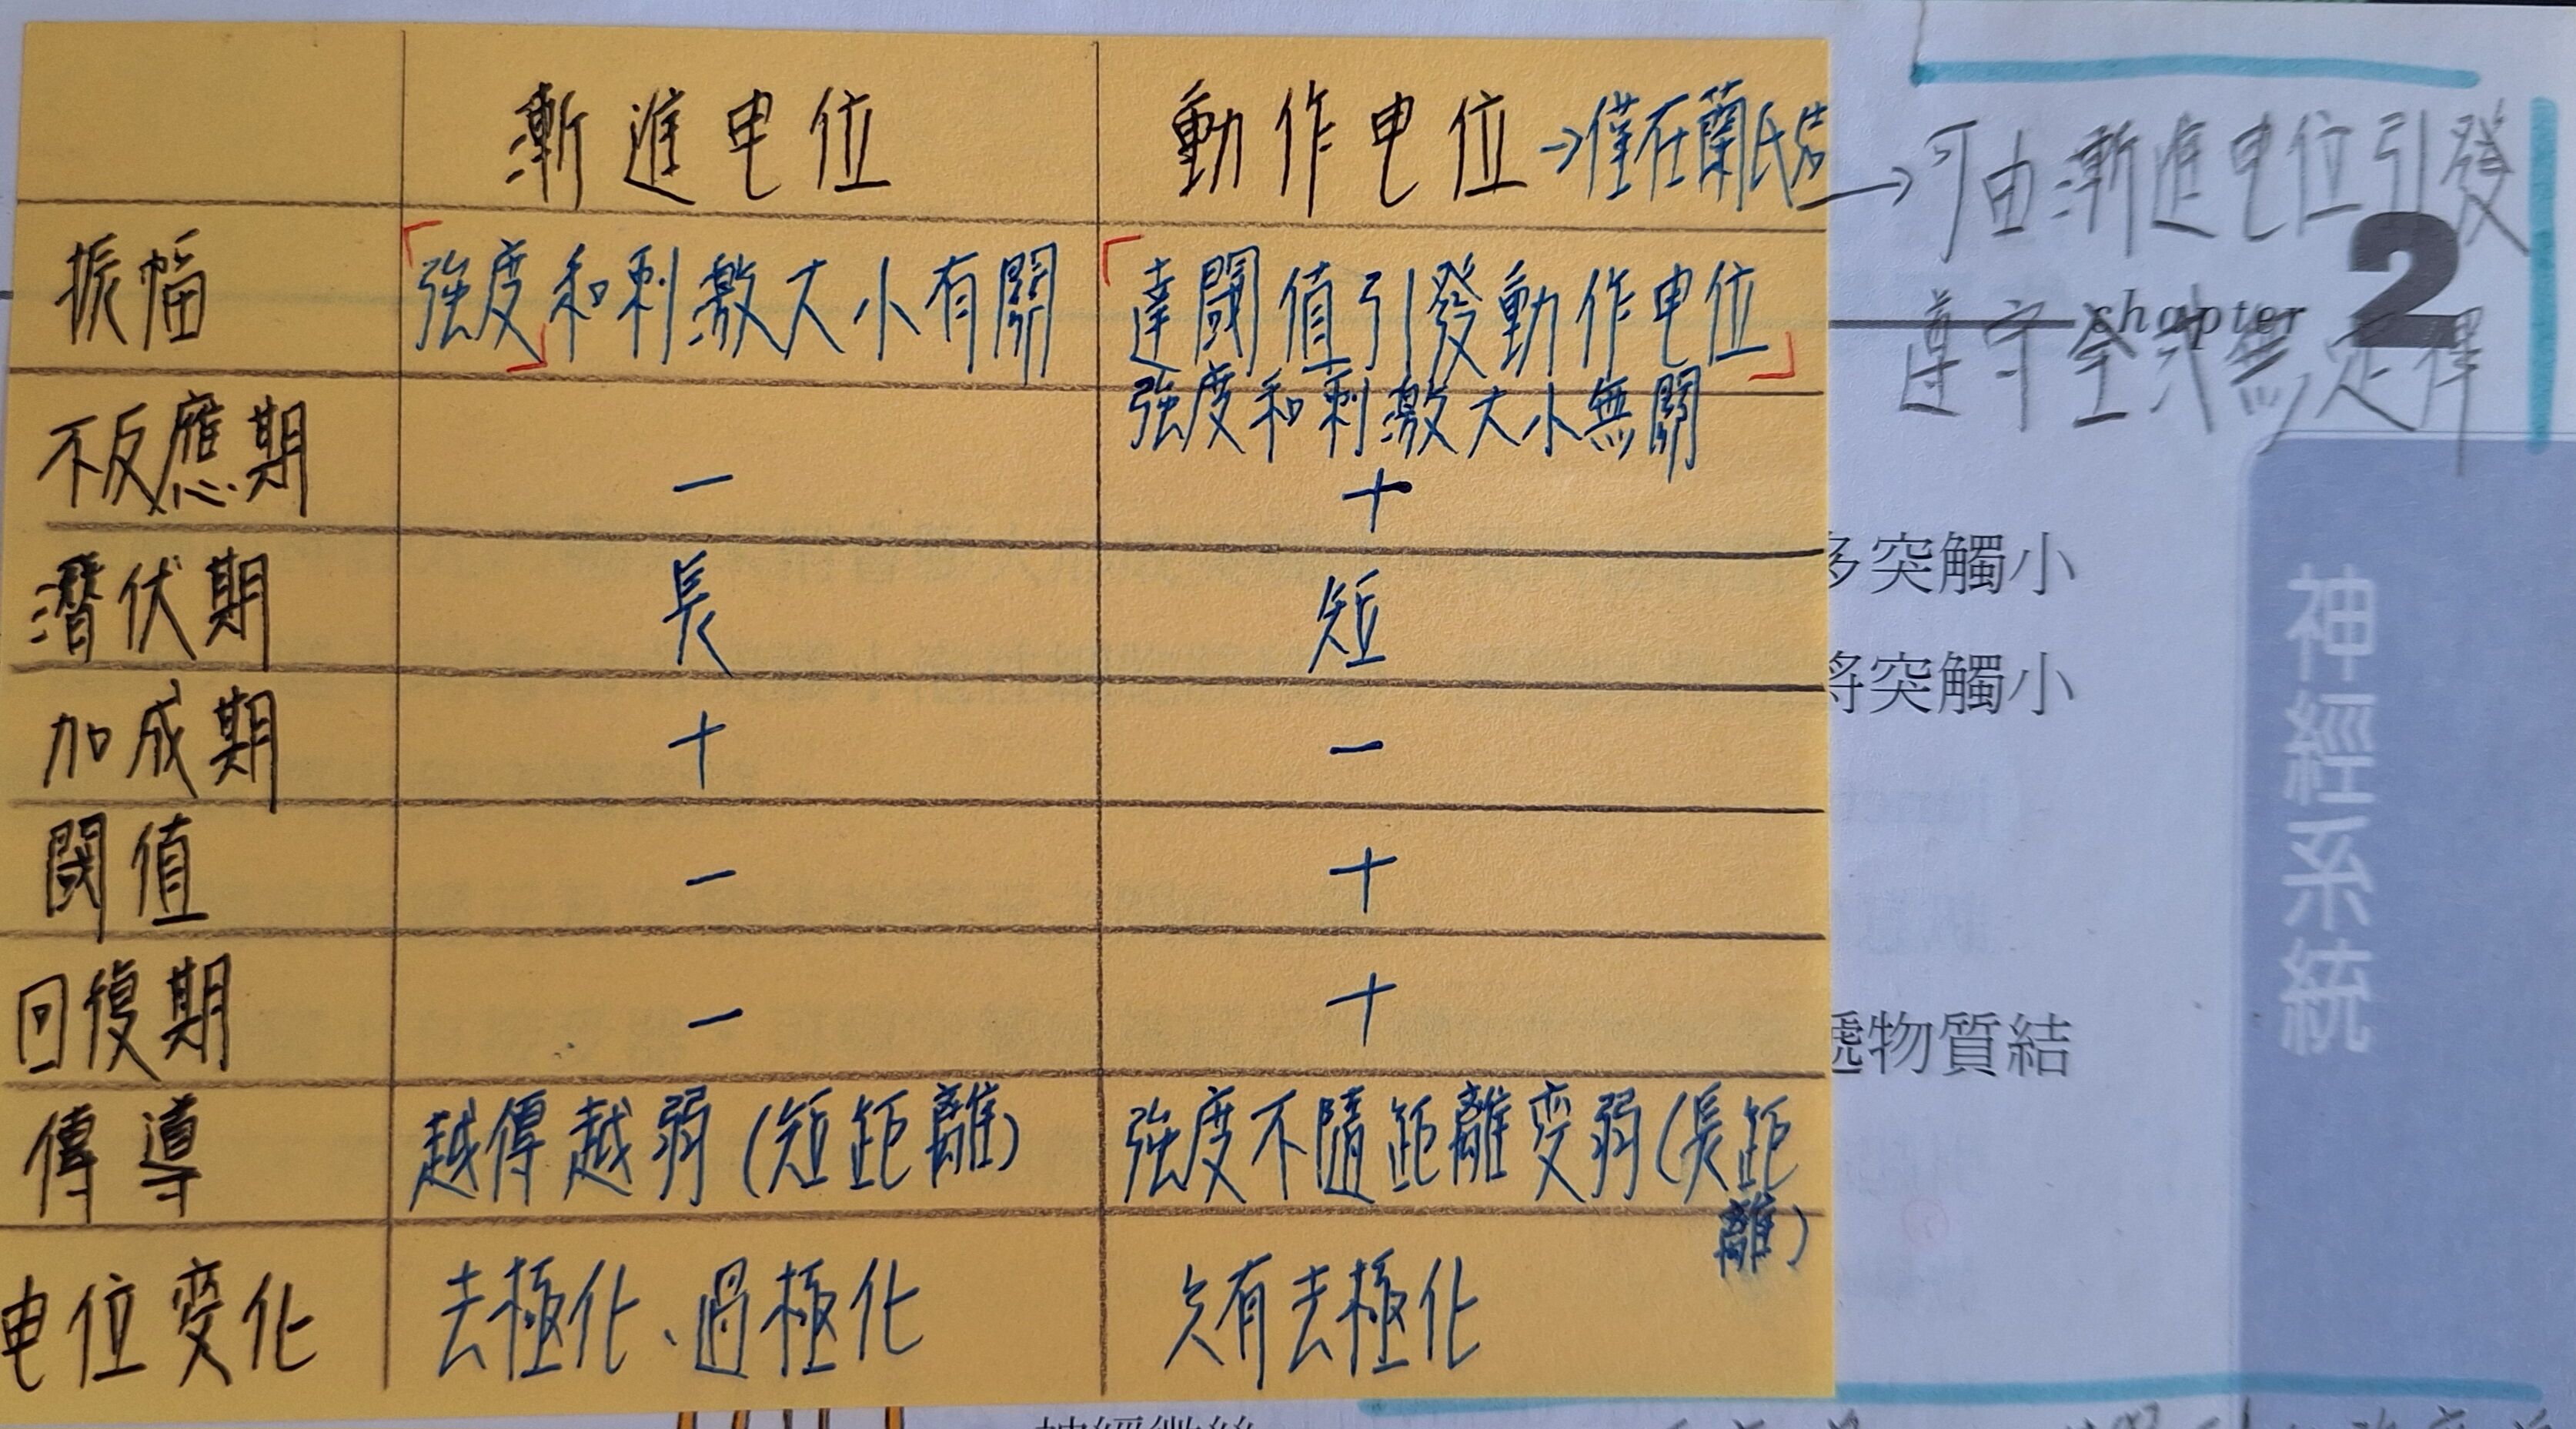 漸進电位
動作电位→僅在蘭氏结
→可由漸進电位引發
遵守全或無定律
振幅
強度和刺激大小有關
達閾值引發動作电位
強度和刺激大小無關
不反應期
－
＋
潛伏期
長
短
加成期
＋
－
閾值
－
＋
回復期
－
＋
傳導
越傳越弱(短距離)
強度不隨距離变弱(長距
離)
电位变化
去極化、過極化
只有去極化
chapter 2
神經系統
多突觸小
將突觸小
遞物質結